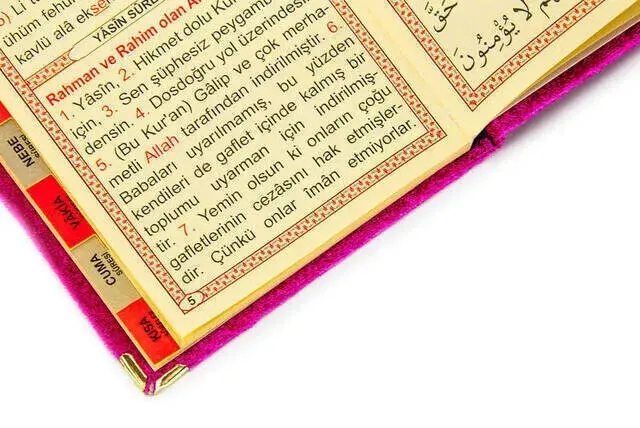 5) Li t
ühüm fehü
kavlü alâ ekser
YÂSÎN SÛR
Rahman ve Rahim olan A
1. Yâsîn. 2. Hikmet dolu Kur
için, 3. Sen şüphesiz peygam
densin. 4. Dosdoğru yol üzerindesi
5. (Bu Kur'an) Gâlip ve çok merha-
metli Allah tarafından indirilmiştir. 6.
Babaları uyarılmamış, bu yüzden
kendileri de gaflet içinde kalmış bir
toplumu uyarman için indirilmiş-
tir. 7. Yemin olsun ki onların çoğu
gafletlerinin cezâsını hak etmişler-
dir. Çünkü onlar îmân etmiyorlar.
5
حَقَّ
لَا يُؤْمِنُونَ
NEBE
SÛRESİ
VÂKIA
CUMA
SÛRESİ
KISA